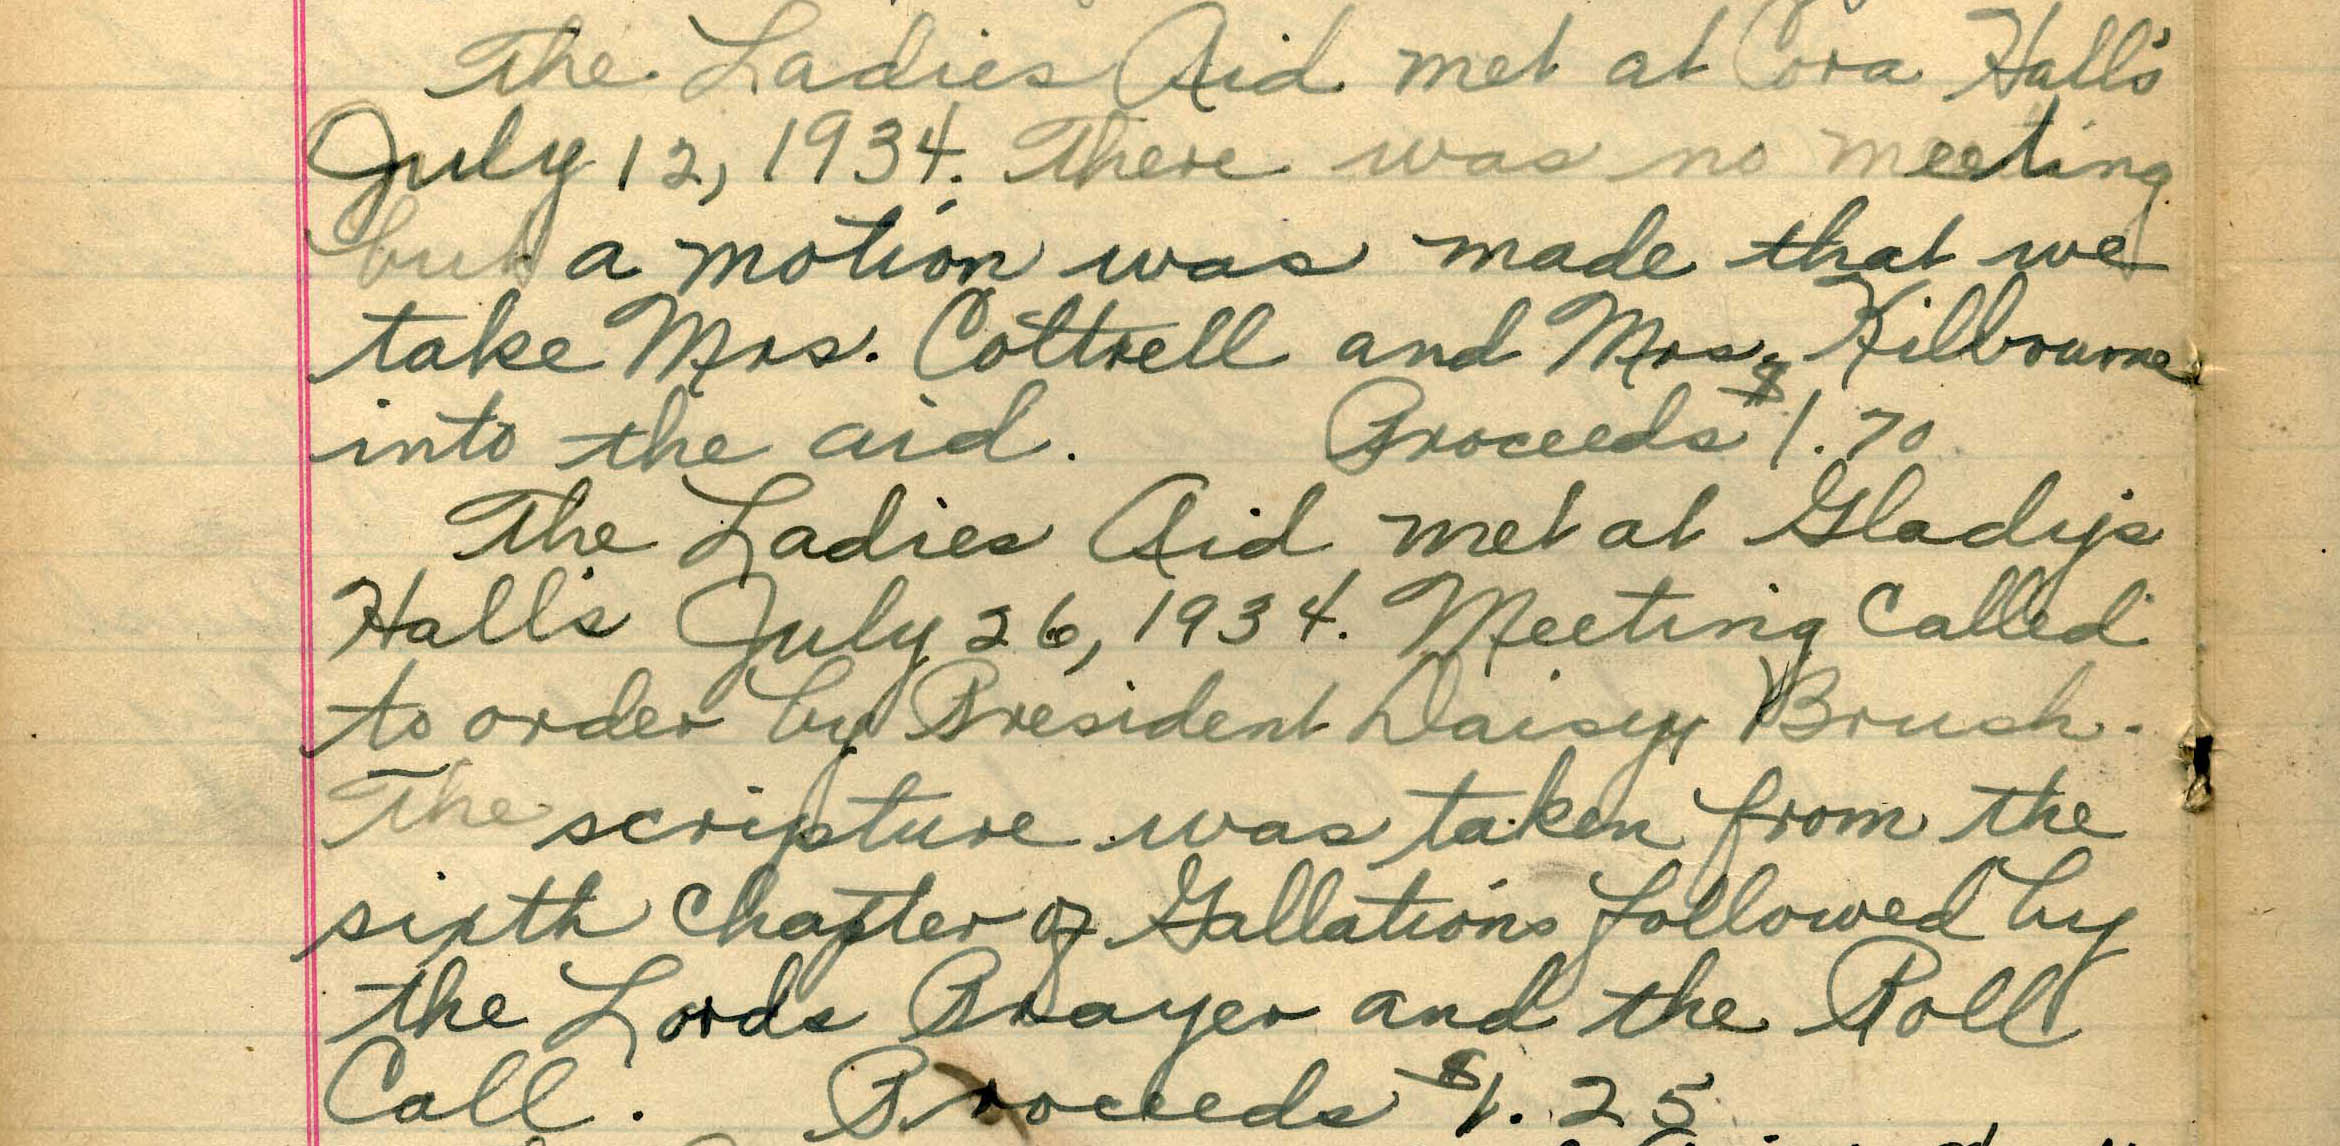 The Ladies Aid met at Cora Hall's
July 12, 1934. There was no meeting
but a motion was made that we
take Mrs. Cottrell and Mrs. Kilbourne
into the aid. Proceeds $1.70
The Ladies Aid met at Gladys
Hall's July 26, 1934. Meeting Called
to order by President Daisy Brush.
The scripture was taken from the
sixth Chapter of Gallations followed by
the Lords Prayer and the Roll
Call. Proceeds $1.25